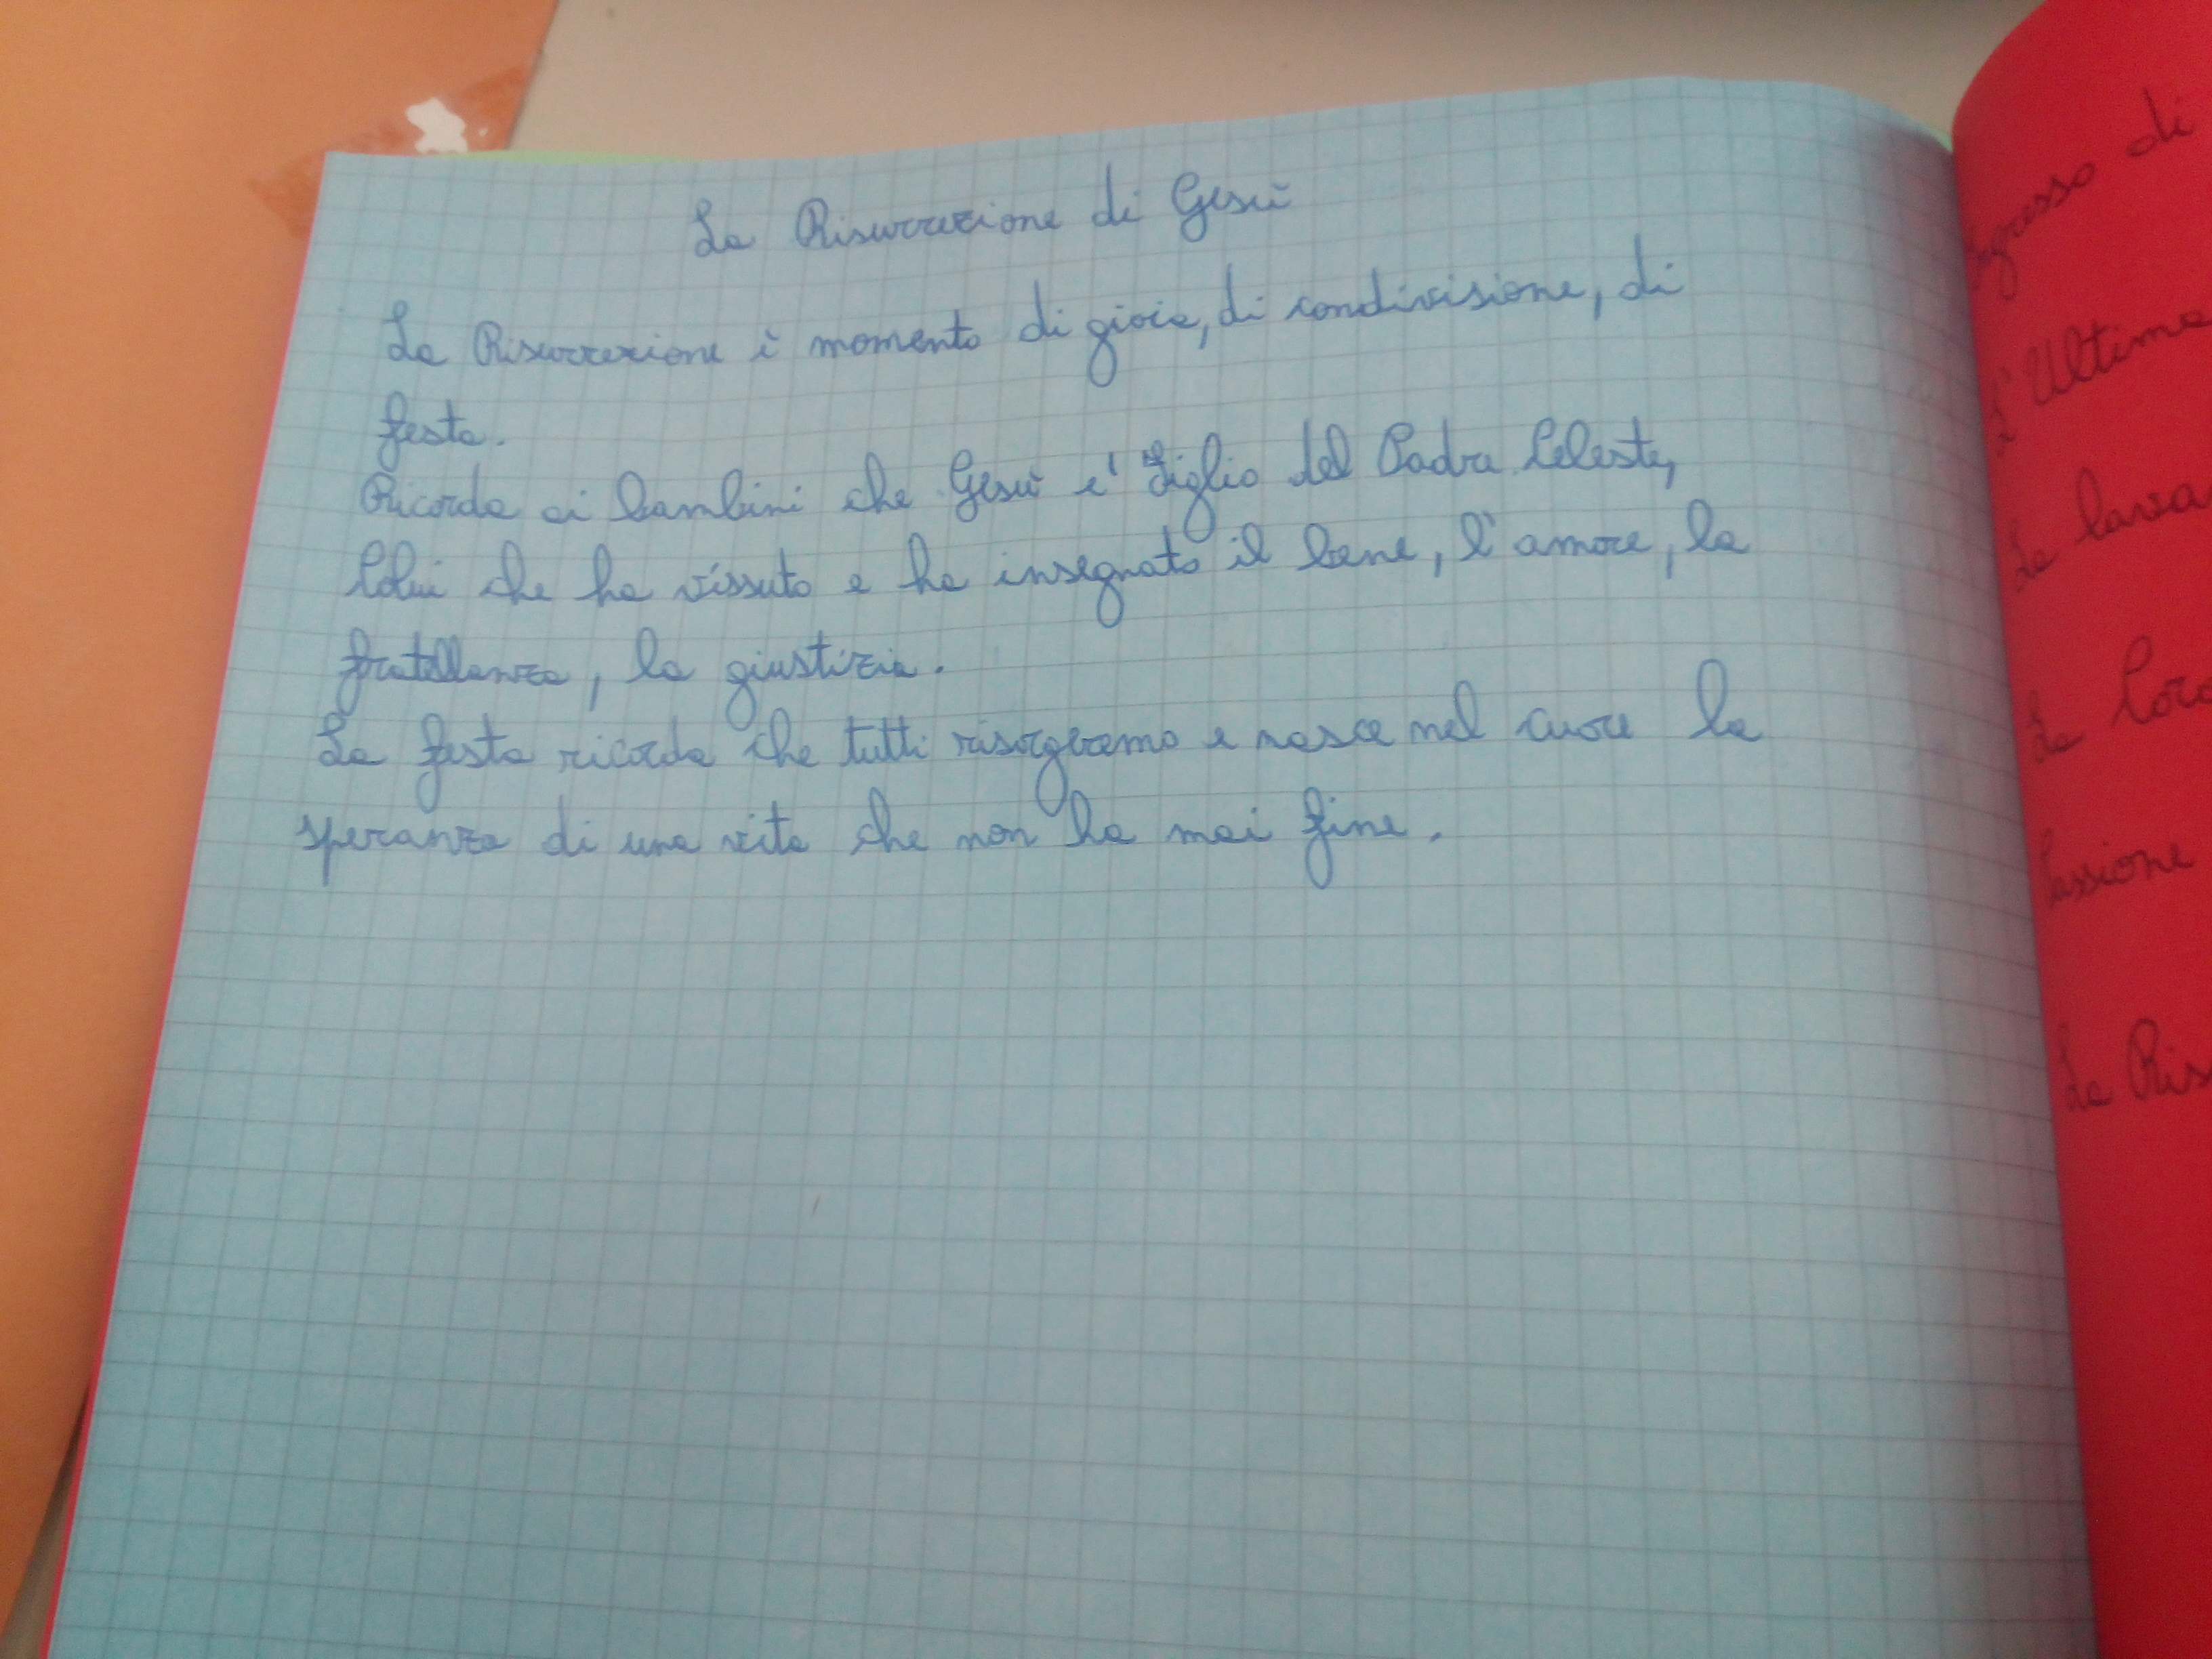 La Risurrezione di Gesù
La Risurrezione è momento di gioia, di condivisione, di
festa.
Ricorda ai bambini che Gesù e' Figlio del Padre Celeste,
Colui che ha vissuto e ha insegnato il bene, l'amore, la
fratellanza, la giustizia.
La festa ricorda che tutti risorgeremo e nasce nel cuore la
speranza di una vita che non ha mai fine.
gresso di
L'Ultima
La lava
La Coro
Passione
La Ris